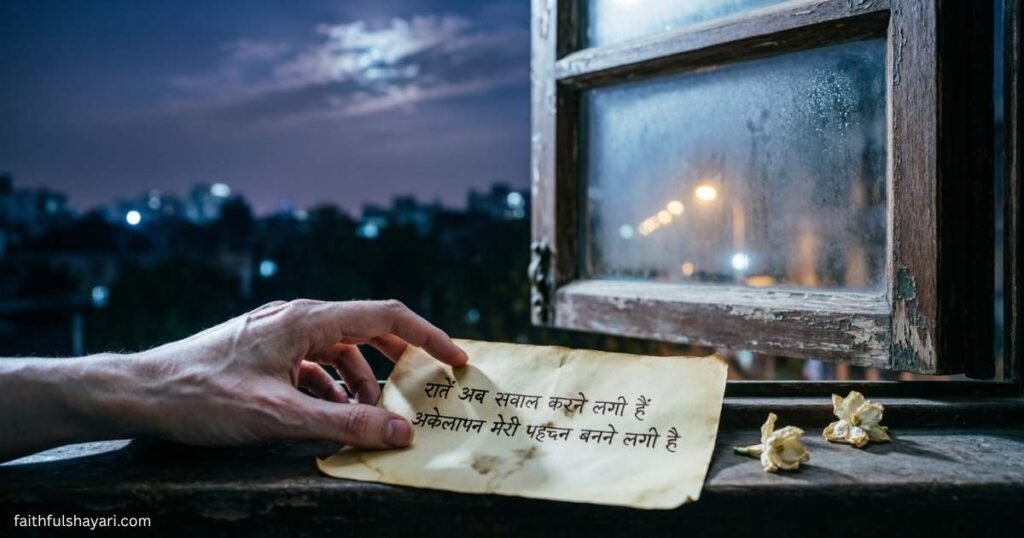 रातें अब सवाल करने लगी हैं
अकेलापन मेरी बनने लगी है
faithfulshayari.com